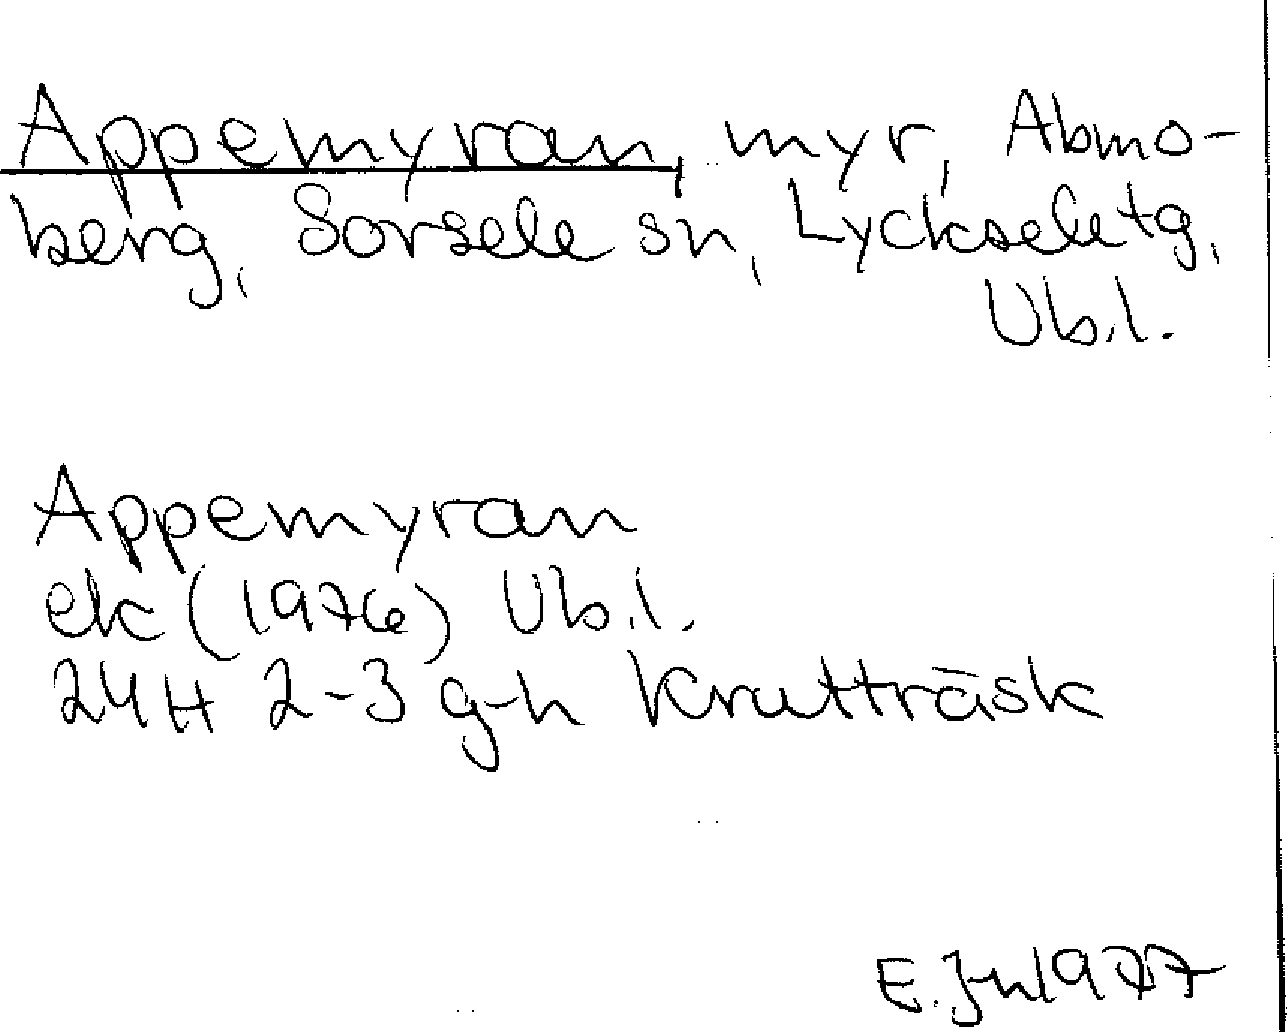 Appemyran, myr, Abmo-
berg, Sorsele sn, Lycksele tg,
Vb.l.
Appemyran
ek (1976) Vb.l.
24H 2-3 g-h Krutträsk
E. Jn 1977